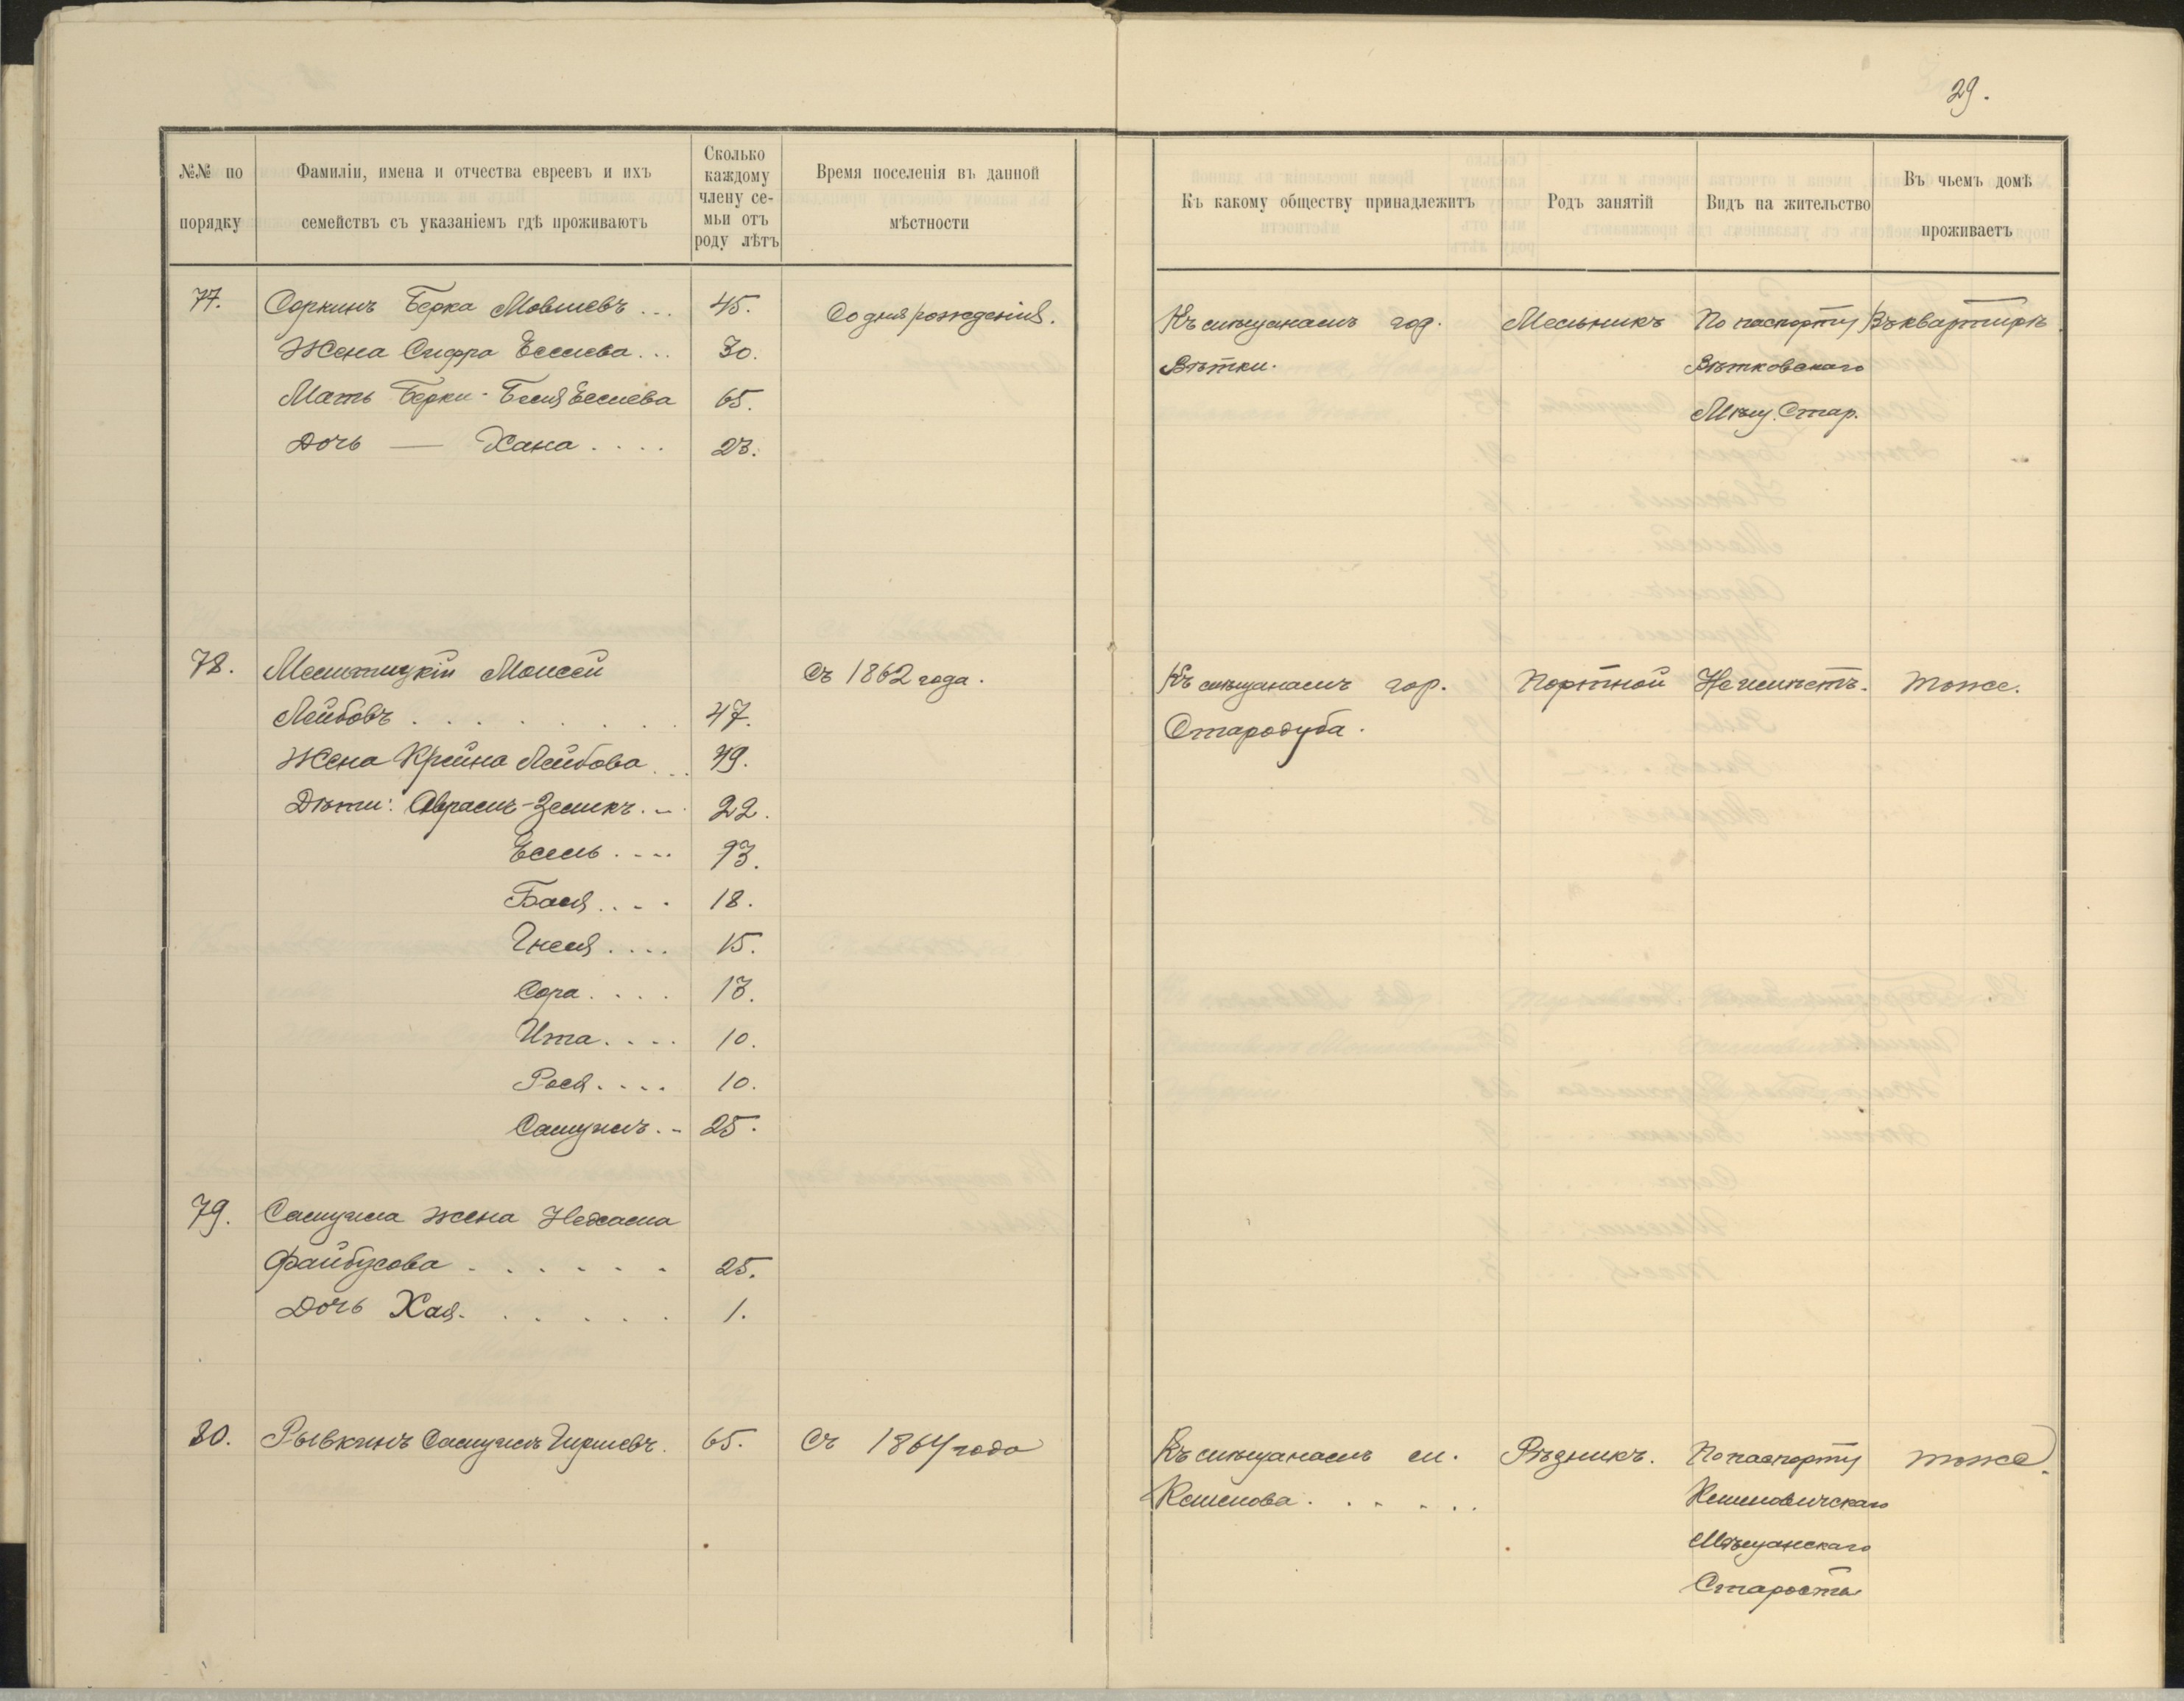 29.
№№ по
порядку
Фамиліи, имена и отчества евреевъ и ихъ
семействъ съ указаніемъ гдѣ проживаютъ
Сколько
каждому
члену се-
мьи отъ
роду лѣтъ
Время поселенія въ данной
мѣстности
Къ какому обществу принадлежитъ
Родъ занятій
Видъ на жительство
Въ чьемъ домѣ
проживаетъ
77. Соркинъ Берка Мовшевъ ... 45. Со дня рожденія. Къ мѣщанамъ гор. Мельникъ По паспорту Въ квартирѣ
Жена Сифра Еселева... 30. Вѣтки. Вѣтковскаго
Мать Берки - Бася Еселева 65. Мѣщ. Стар.
Дочь — Хана .... 23.
78. Моисей Съ 1862 года. Къ мѣщанамъ гор. Портной Не имѣетъ. Тоже.
Лейбовъ ....... 47. Стародуба.
Жена Крейна Лейбова ... 49.
Дѣти: Абрамъ-Зеликъ .. 22.
Есель .... 13.
Бася .... 18.
Гнеся .... 15.
Сора .... 13.
Ита .... 10.
Рося .... 10.
Самуилъ .. 25.
79. Самуила жена Нехама
Файбусова ...... 25.
Дочь Хая ...... 1.
80. Рывкинъ Самуилъ Гиршевъ. 65. Съ 1864 года Къ мѣщанамъ м. Рѣзникъ. По паспорту тоже.
......
Мѣщанскаго
Староста